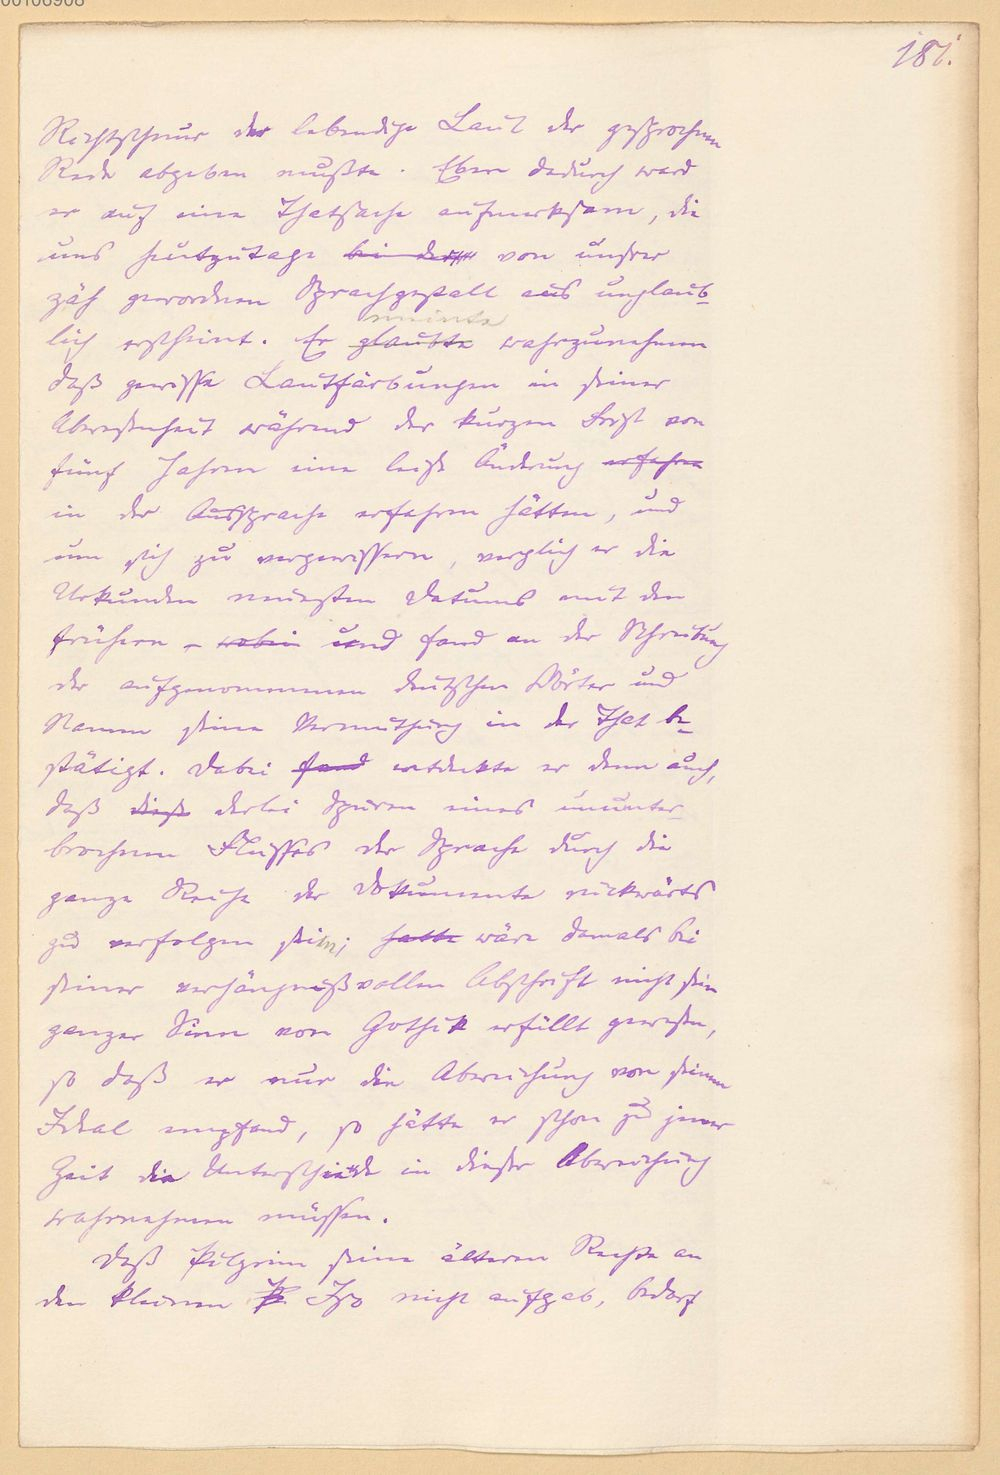 181.
Richtschnur der lebendige Laut der gesprochnen
Rede abgeben mußte. Eben dadurch ward
er auf eine Thatsache aufmerksam, die
uns heutzutage bei der von unsrer
zäh gewordnen Sprachgestalt aus unglaub-
meinte
lich erscheint. Er glaubte wahrzunehmen
daß gewisse Lautfärbungen in seiner
Abwesenheit während der kurzen Frist von
fünf Jahren eine leise Änderung erfahren
in der Aussprache erfahren hätten, und
um sich zu vergewissern, verglich er die
Urkunden neuesten Datums mit den
frühern – wobei und fand an der Schreibung
der aufgenommenen deutschen Wörter und
Namen seine Vermuthung in der That be-
stätigt. Dabei fand entdeckte er denn auch,
daß diese derlei Spuren eines ununter-
brochnen Flusses der Sprache durch die
ganze Reihe der Dokumente rückwärts
zu verfolgen seien; hatte wäre damals bei
seiner verhängnißvollen Abschrift nicht sein
ganzer Sinn von Gothik erfüllt gewesen,
so daß er nur die Abweichung von seinem
Ideal empfand, so hätte er schon zu jener
Zeit die Unterschiede in dieser Abweichung
wahrnehmen müssen.
Daß Pilgrim seine älteren Rechte an
den kleinen Iso nicht aufgab, bedarf